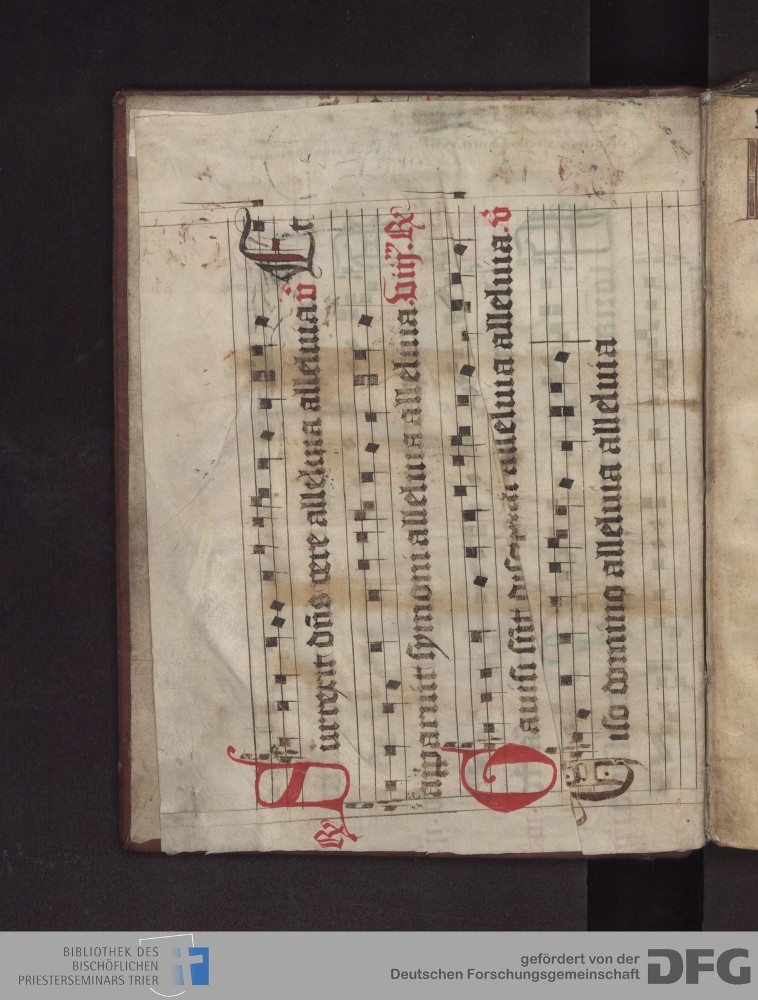 ℟ Surrexit dn̄s vere alleluia alleluia v̄ Et
apparuit symoni alleluia alleluia .viij. ℟
Gauisi sūt discipuli alleluia alleluia. v̄
Uiso domino alleluia alleluia
BIBLIOTHEK DES
BISCHÖFLICHEN
PRIESTERSEMINARS TRIER
gefördert von der
Deutschen Forschungsgemeinschaft
DFG